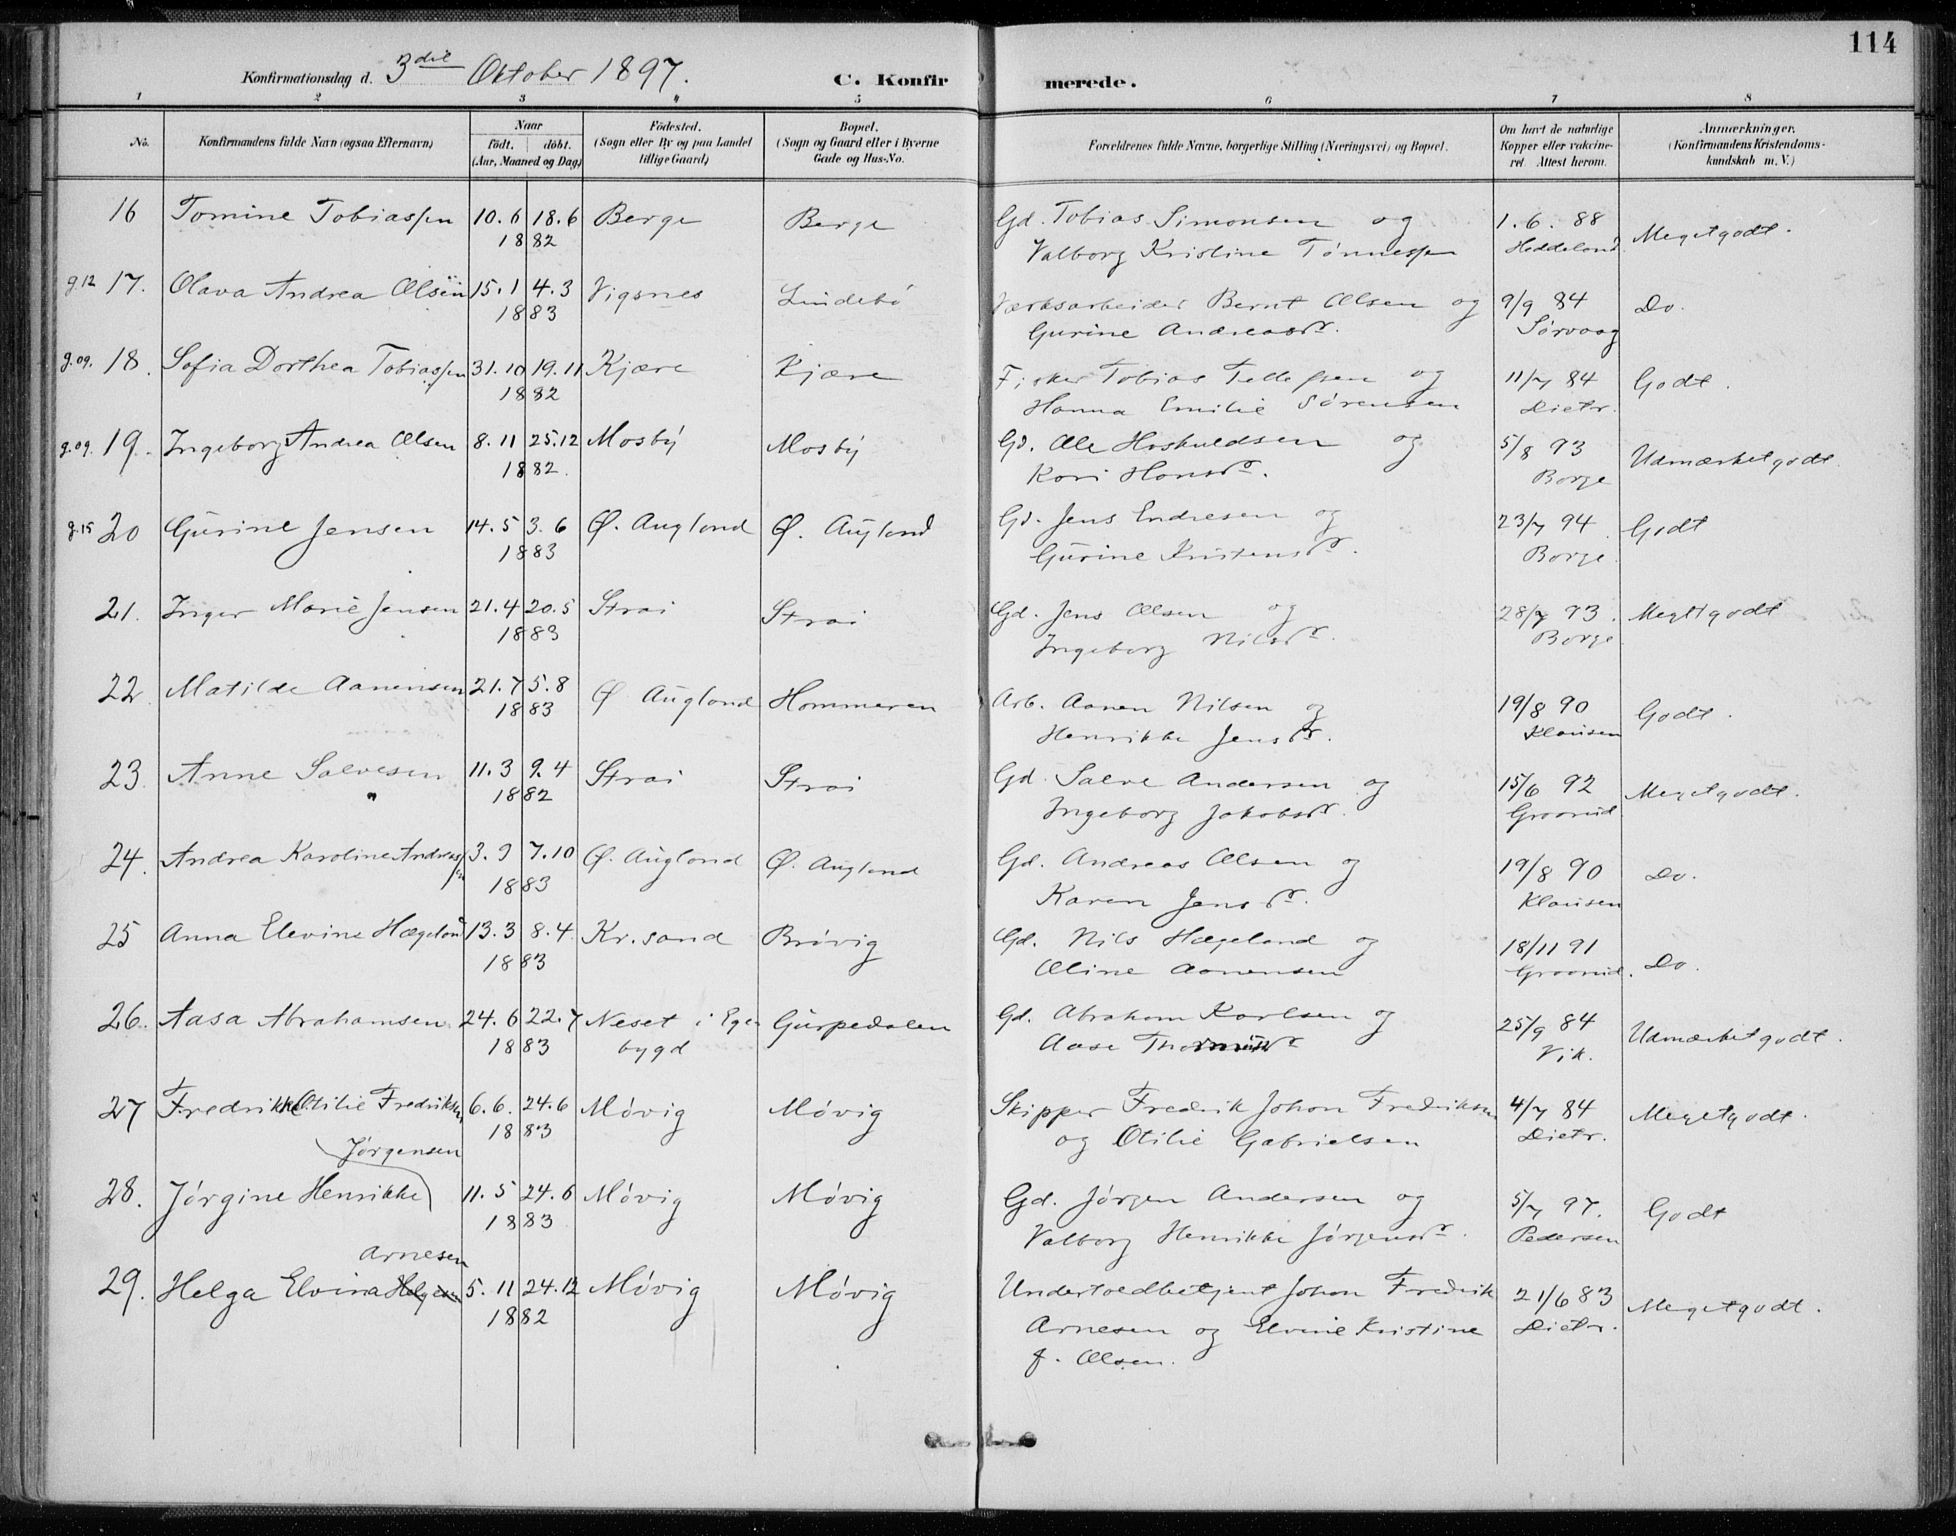 114
Konfirmationsdag d. 3die Oktober 1897. C. Konfir merede.
1 2 3 4 5 6 7 8
No. Konfirmandens fulde Navn (ogsaa Efternavn) Naar født. døbt. (Aar, Maaned og Dag) Fødested. (Sogn eller By og paa Landet tillige Gaard) Bopæl. (Sogn og Gaard eller i Byerne Gade og Hus-No. Forældrenes fulde Navne, borgerlige Stilling (Næringsvei) og Bopæl. Om havt de naturlige Kopper eller vakcineret. Attest herom. Anmærkninger. (Konfirmandens Kristendomskundskab m. V.)
16 Tomine Tobiassen 10.6 18.6 Berge Berge Gd. Tobias Simonsen og 1.6.88 Megetgodt.
1882 Valborg Kristine Tønnessen Heddeland
g.12 17. Olava Andrea Olsen 15.1 4.3 Vigsnes Lindebö Værksarbeider Bernt Olsen og 9/9 84 Do.
1883 Gurine Andreasdr. Sørvaag
g.09. 18. Sofia Dorthea Tobiassen 31.10 19.11 Kjære Kjære Fisker Tobias Tellefsen og 11/7 84 Godt.
1882 Hanna Emilie Sørensen Dietr.
g.09. 19. Ingeborg Andrea Olsen 8.11 25.12 Mosby Mosby Gd. Ole Hoskuldsen og 5/8 93 Udmærketgodt
1882. Kari Hansdr. Borge
g.15 20 Gurine Jensen 14.5 3.6 Ø. Augland Ø. Augland Gd. Jens Endresen og 23/7 94 Godt
1883 Gurine Kristensdr. Borge
21. Inger Marie Jensen 21.4 20.5 Strai Strai Gd. Jens Olsen og 28/7 93. Megetgodt
1883 Ingeborg Nilsdr. Borge
22 Matilde Aanensen 21.7 5.8 Ø. Augland Hommeren Arb. Aanen Nilsen og 19/8 90 Godt.
1883 Henrikke Jensdr. Klausen
23. Anne Salvesen 11.3 9.4 Strai Strai Gd. Salve Andersen og 15/6 92 Megetgodt.
1882 Ingeborg Jakobsdr. Groorud
24. Andrea Karoline Andreassen 3.9 7.10 Ø. Augland Ø. Augland Gd. Andreas Olsen og 19/8 90 Do.
1883 Karen Jensdr. Klausen
25 Anna Elevine Hægeland 13.3 8.4 Kr.sand Brövig Gd. Nils Hægeland og 18/11 91 Do.
1883 Oline Aanensen Groorud.
26. Aasa Abrahamsen 24.6 22.7 Neset i Ege Gurpedalen Gd. Abraham Karlsen og 25/9 84 Udmærketgodt.
1883 bygd Aase Vik.
27 Fredrikke Otilie Fredriksen 6.6. 24.6 Møvig Møvig Skipper Fredrik Johan Fredriksen 4/7 84 Megetgodt.
1883 og Otilie Gabrielsen Dietr.
Jørgensen
28. Jørgine Henrikke 11.5 24.6 Møvig Møvig Gd. Jørgen Andersen og 5/7 97. Godt
1883 Valborg Henrikke Jørgensdr. Pedersen
Arnesen
29. Helga Elvina Helgesen 5.11 24.12 Møvig Møvig Undertoldbetjent Johan Fredrik 21/6 83 Megetgodt.
1882 Arnesen og Elvine Kristine Dietr.
f. Olsen.